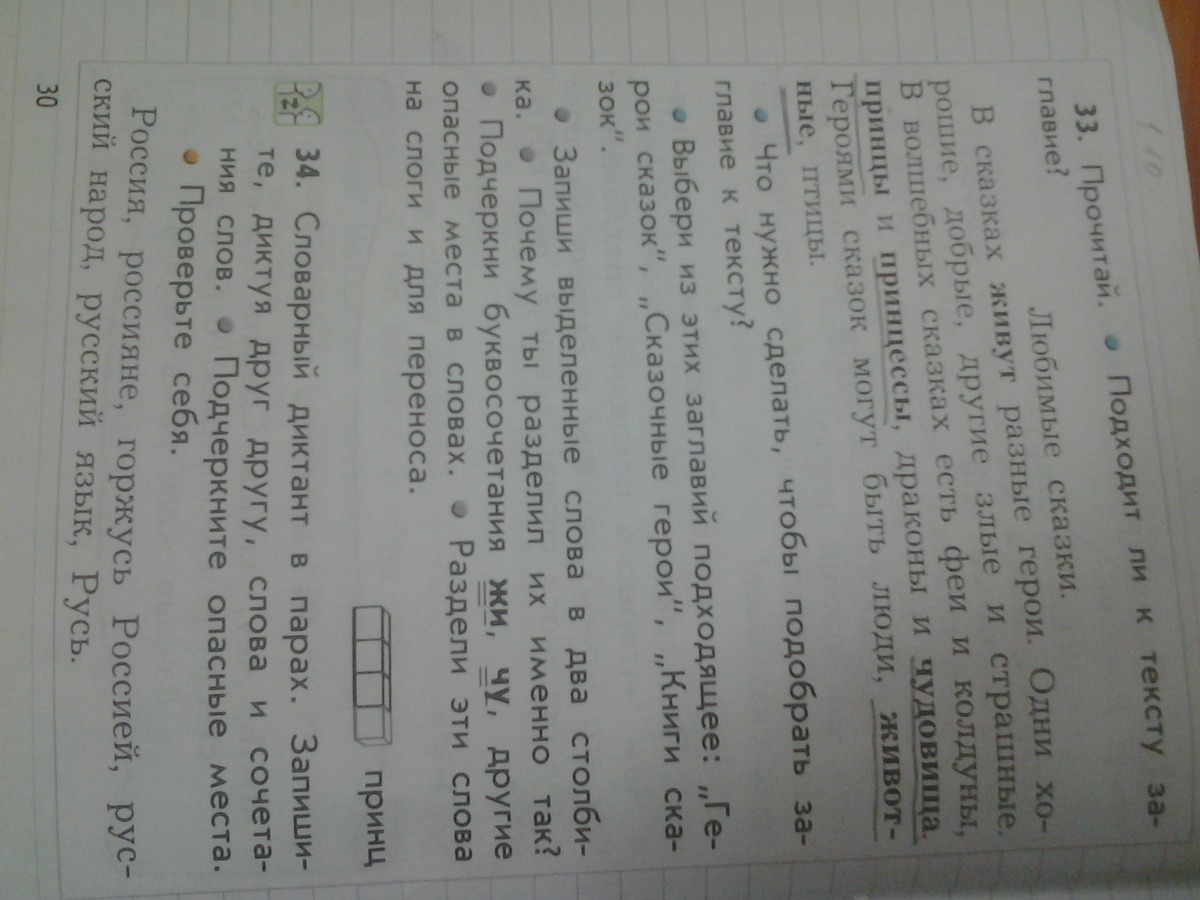 33. Прочитай. • Подходит ли к тексту за-
главие?
Любимые сказки.
В сказках живут разные герои. Одни хо-
рошие, добрые, другие злые и страшные.
В волшебных сказках есть феи и колдуны,
принцы и принцессы, драконы и чудовища.
Героями сказок могут быть люди, живот-
ные, птицы.
• Что нужно сделать, чтобы подобрать за-
главие к тексту?
• Выбери из этих заглавий подходящее: „Ге-
рои сказок“, „Сказочные герои“, „Книги ска-
зок“.
• Запиши выделенные слова в два столби-
ка. • Почему ты разделил их именно так?
• Подчеркни буквосочетания жи, чу, другие
опасные места в словах. • Раздели эти слова
на слоги и для переноса.
принц
34. Словарный диктант в парах. Запиши-
те, диктуя друг другу, слова и сочета-
ния слов. • Подчеркните опасные места.
• Проверьте себя.
Россия, россияне, горжусь Россией, рус-
ский народ, русский язык, Русь.
30